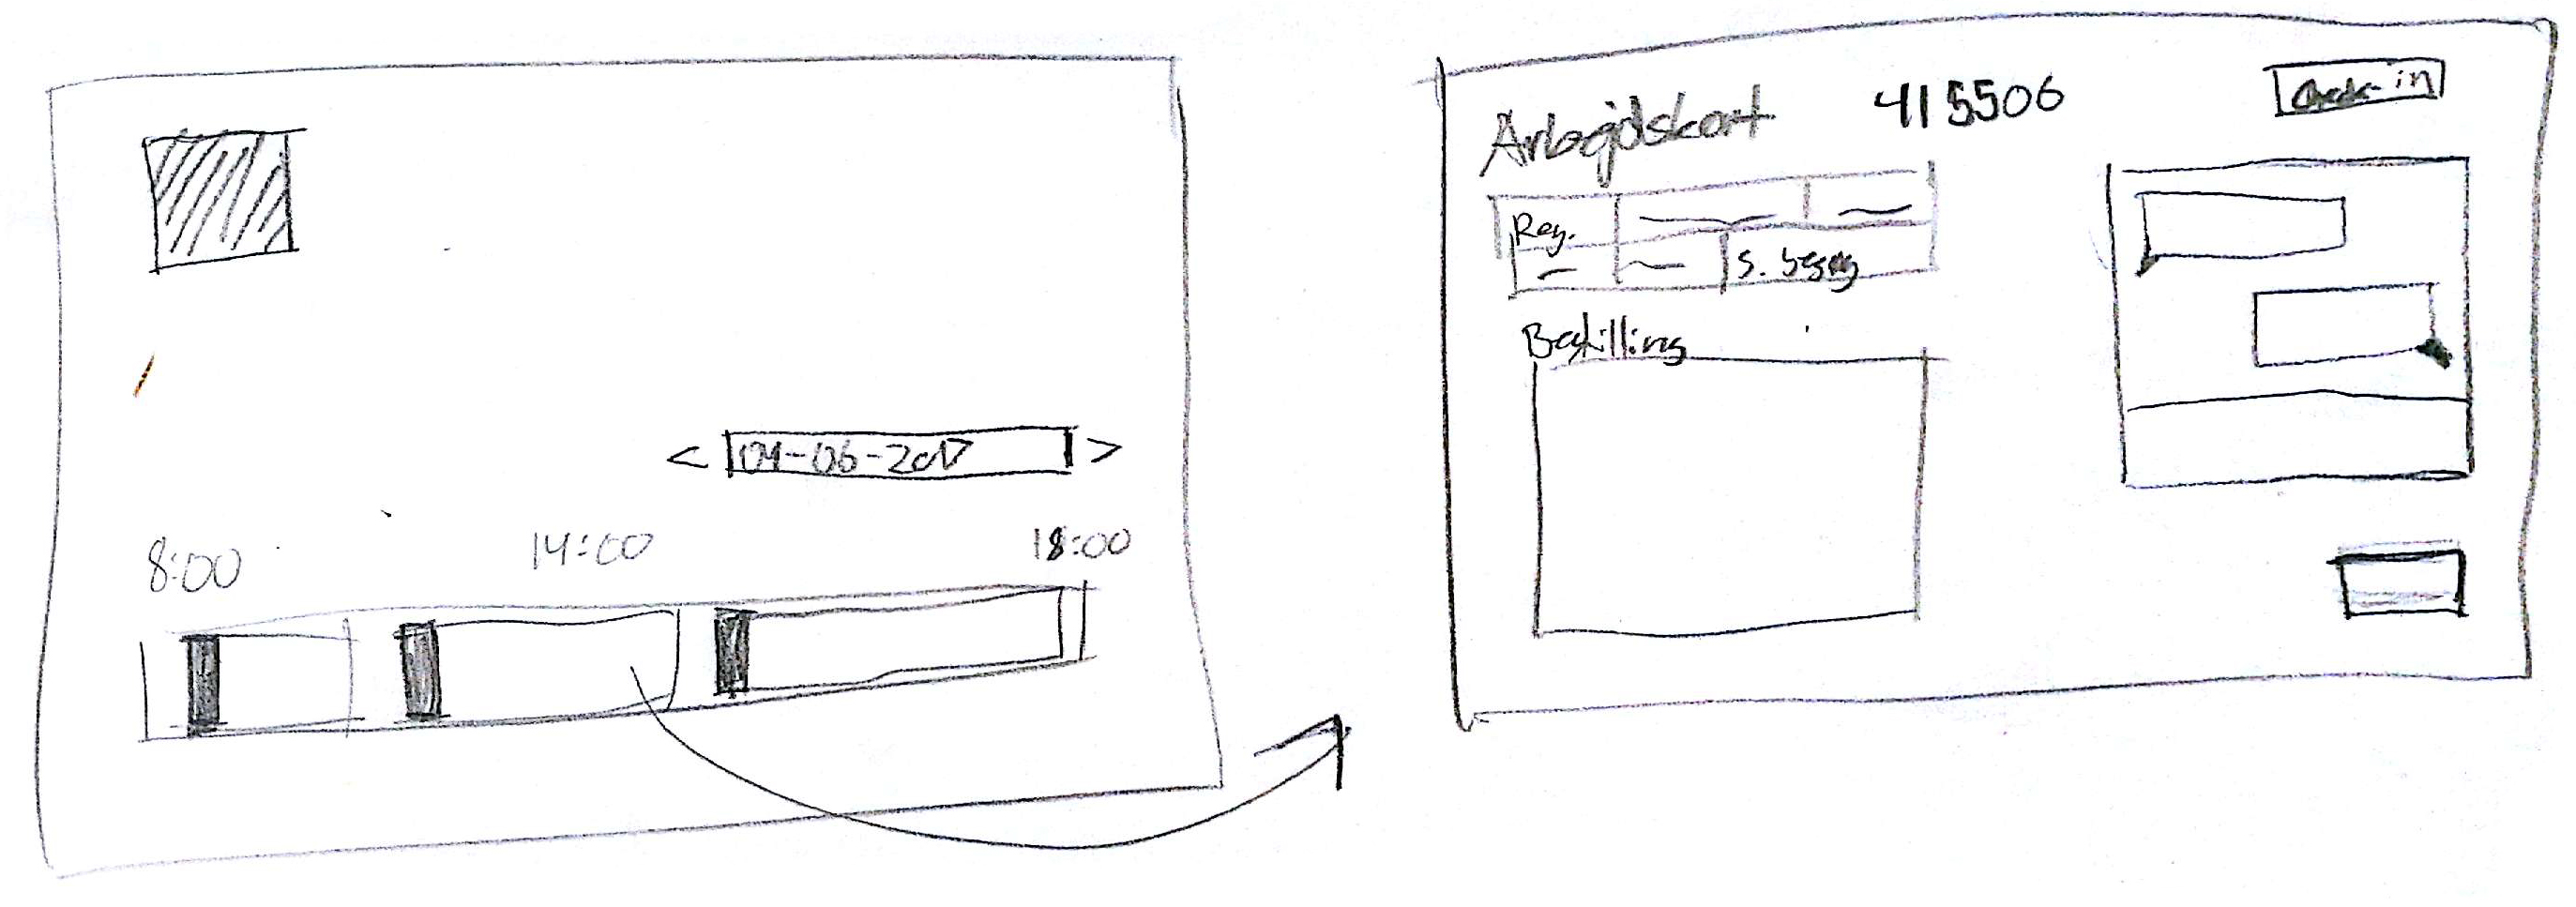 < 04-06-2017 >
8:00 14:00 18:00
Arbejdskort 415506
Check-in
Reg.
s. besøg
Bestilling